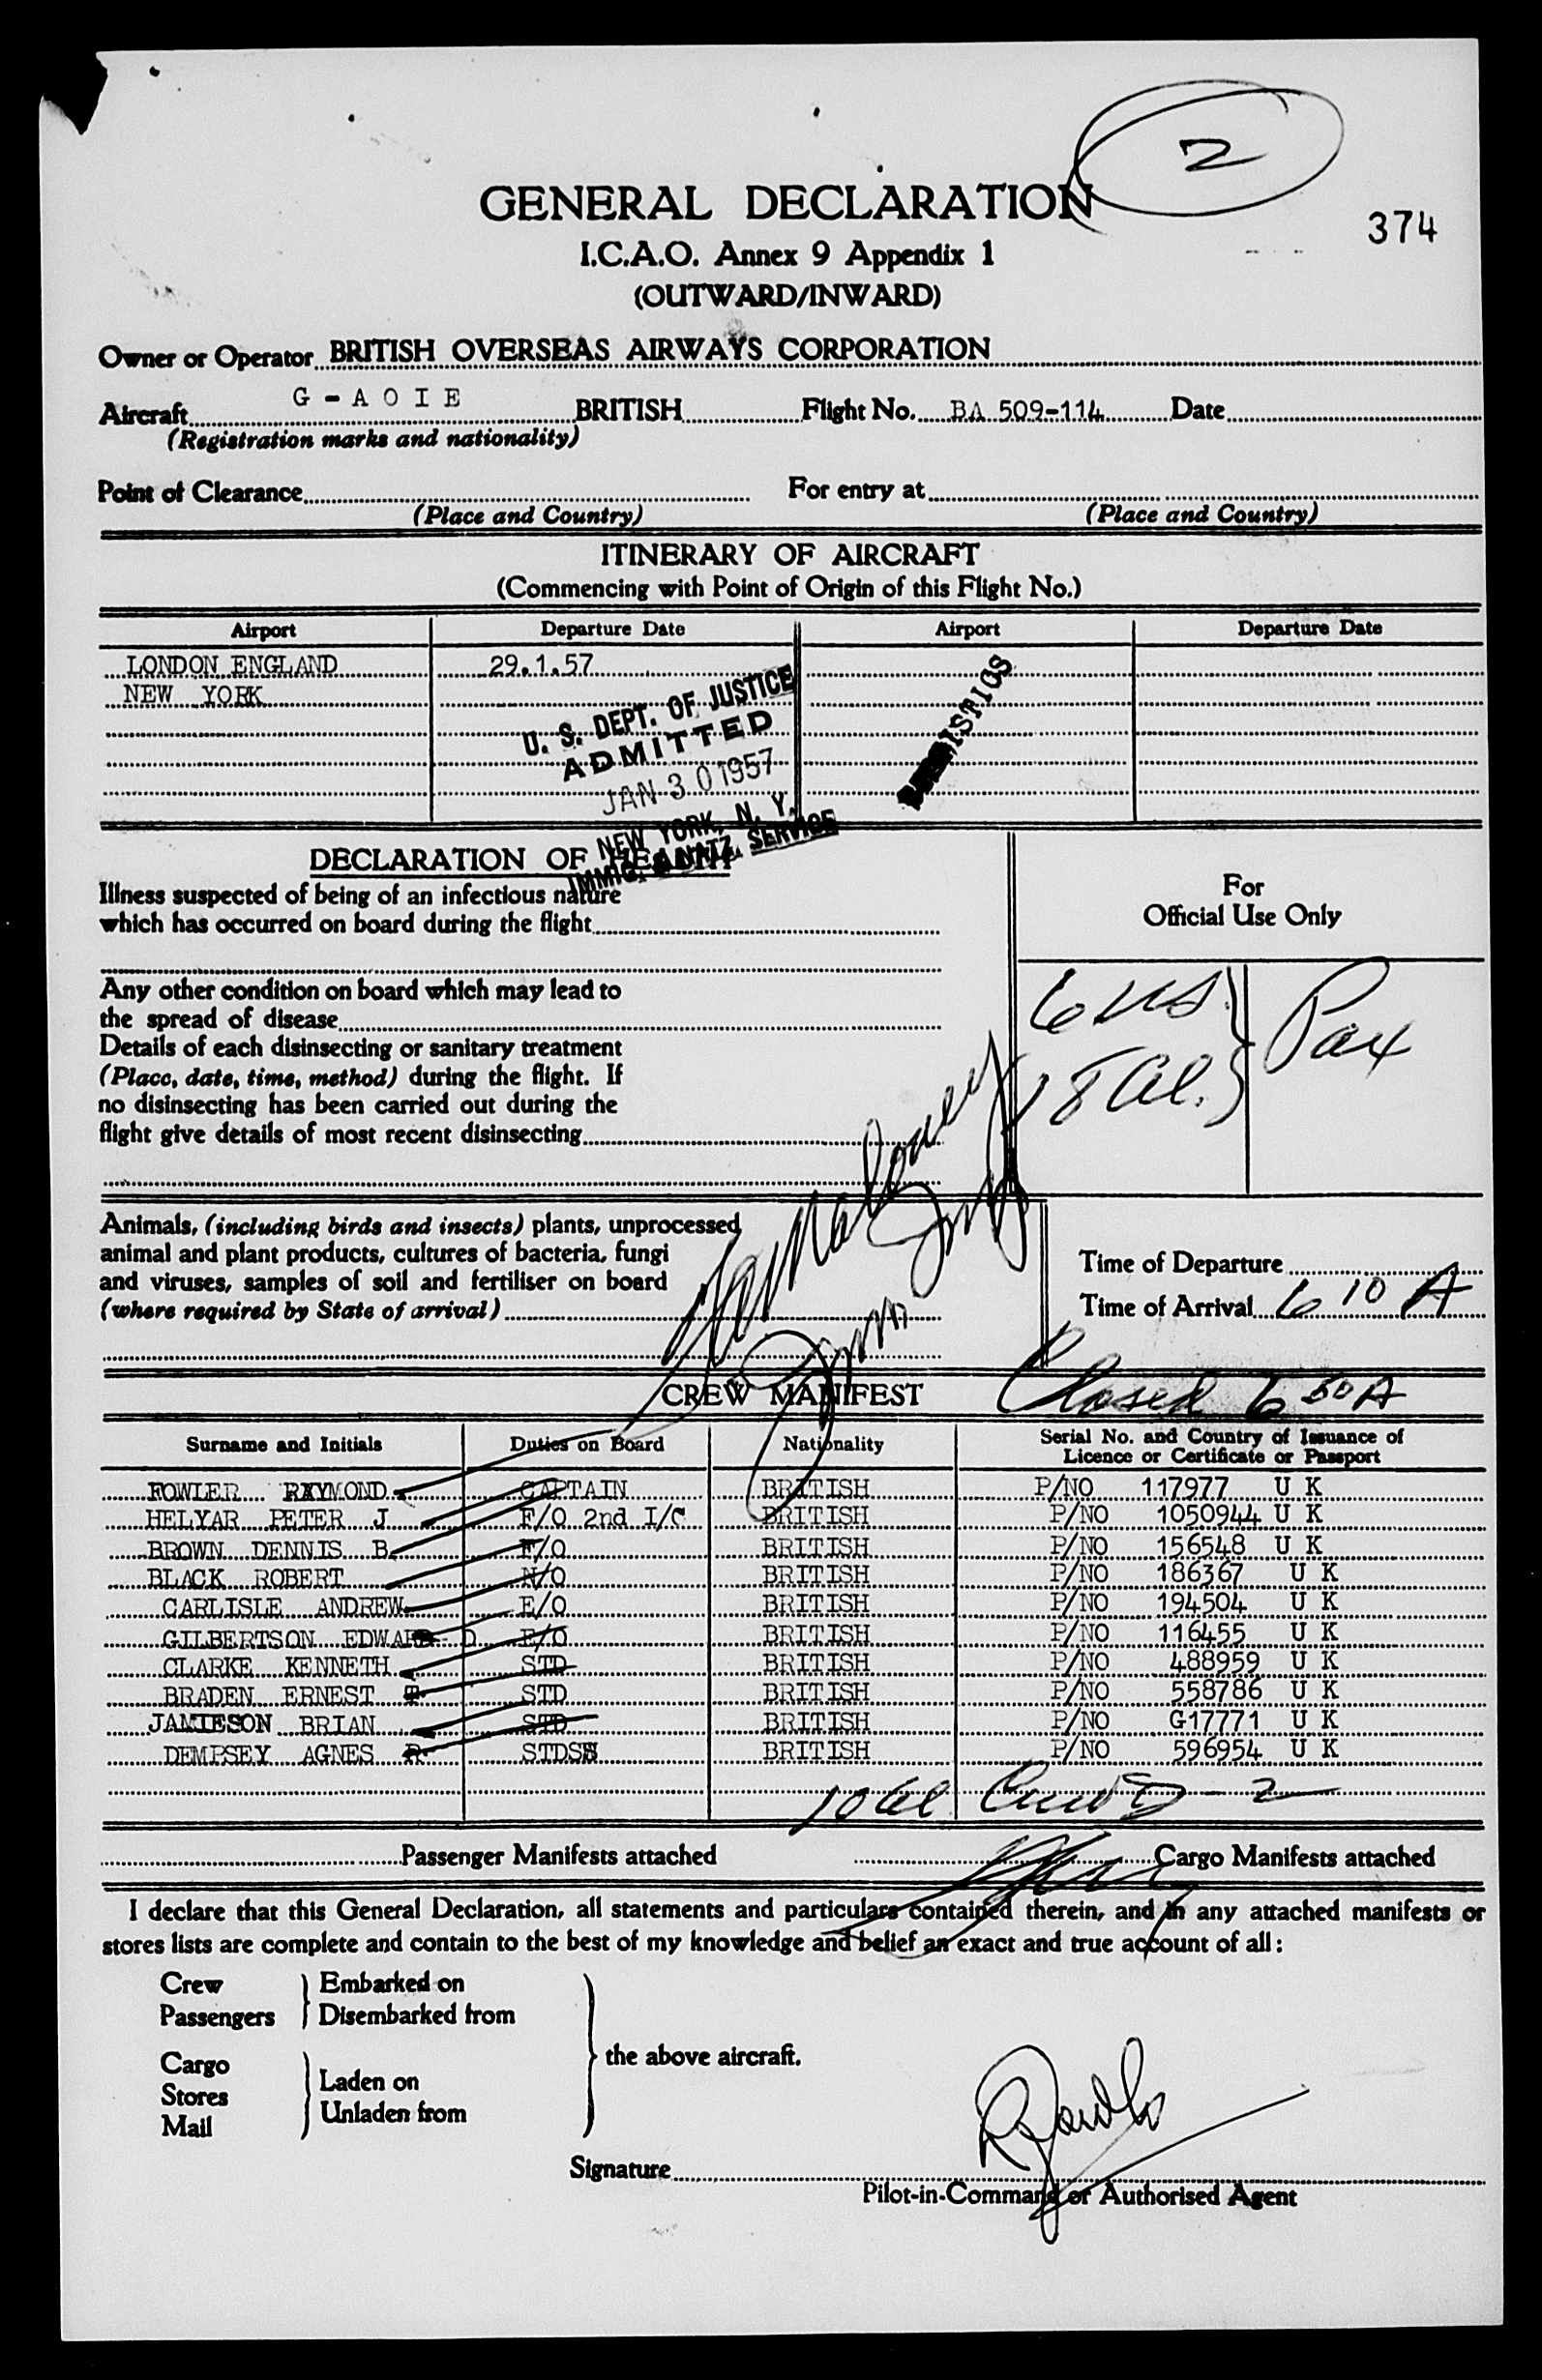 2
GENERAL DECLARATION
374
I.C.A.O. Annex 9 Appendix 1
(OUTWARD/INWARD)
Owner or Operator BRITISH OVERSEAS AIRWAYS CORPORATION
Aircraft G - A O I E BRITISH Flight No. BA 509-114 Date
(Registration marks and nationality)
Point of Clearance For entry at
(Place and Country) (Place and Country)
ITINERARY OF AIRCRAFT
(Commencing with Point of Origin of this Flight No.)
Airport Departure Date Airport Departure Date
LONDON ENGLAND 29.1.57
NEW YORK
U. S. DEPT. OF JUSTICE
ADMITTED
JAN 30 1957
NEW YORK, N. Y.
IMMIG. & NATZ. SERVICE
DECLARATION OF HEALTH
Illness suspected of being of an infectious nature
which has occurred on board during the flight
For
Official Use Only
Any other condition on board which may lead to
the spread of disease
Details of each disinsecting or sanitary treatment
(Place, date, time, method) during the flight. If
no disinsecting has been carried out during the
flight give details of most recent disinsecting
6 US
18 al. Pax
Animals, (including birds and insects) plants, unprocessed
animal and plant products, cultures of bacteria, fungi
and viruses, samples of soil and fertiliser on board
(where required by State of arrival)
Time of Departure
Time of Arrival 6 10 A
CREW MANIFEST Closed 6 50 A
Surname and Initials Duties on Board Nationality Serial No. and Country of Issuance of
Licence or Certificate or Passport
FOWLER RAYMOND CAPTAIN BRITISH P/NO 117977 U K
HELYAR PETER J F/O 2nd I/C BRITISH P/NO 1050944 U K
BROWN DENNIS B F/O BRITISH P/NO 156548 U K
BLACK ROBERT N/O BRITISH P/NO 186367 U K
CARLISLE ANDREW E/O BRITISH P/NO 194504 U K
GILBERTSON EDWARD D E/O BRITISH P/NO 116455 U K
CLARKE KENNETH STD BRITISH P/NO 488959 U K
BRADEN ERNEST T STD BRITISH P/NO 558786 U K
JAMIESON BRIAN STD BRITISH P/NO G17771 U K
DEMPSEY AGNES R STDSS BRITISH P/NO 596954 U K
10 al
Passenger Manifests attached Cargo Manifests attached
I declare that this General Declaration, all statements and particulars contained therein, and in any attached manifests or
stores lists are complete and contain to the best of my knowledge and belief an exact and true account of all:
Crew Embarked on
Passengers Disembarked from
the above aircraft.
Cargo
Stores Laden on
Mail Unladen from
Signature
Pilot-in-Command or Authorised Agent